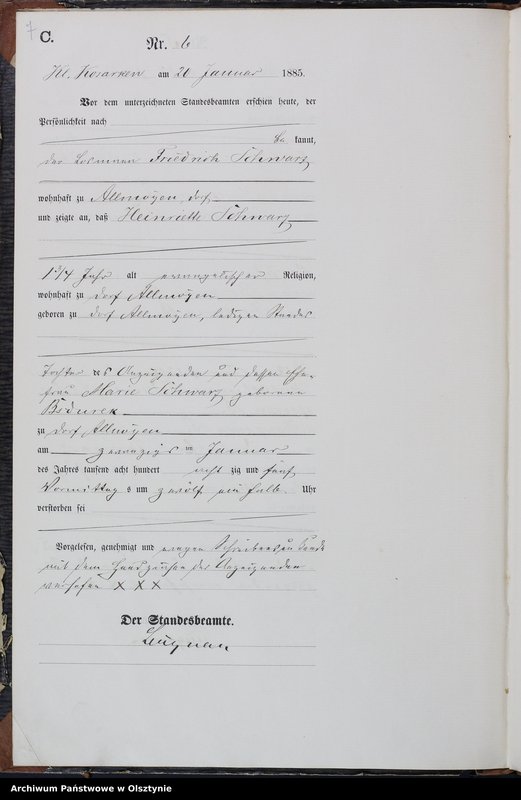 7
C.
Nr. 6
Kl. Kosarken am 20 Januar 1885.
Vor dem unterzeichneten Standesbeamten erschien heute, der
Persönlichkeit nach
be kannt,
der Losmann Friedrich Schwarz
wohnhaft zu Allmoyen, dorf
und zeigte an, daß Heinriette Schwarz
1 3/4 Jahr alt evangelischer Religion,
wohnhaft zu dorf Allmoyen
geboren zu dorf Allmoyen, ledigen Standes
Tochter des Anzeigenden und dessen Ehe-
frau Marie Schwarz geborene
Bsdurek
zu dorf Allmoyen
am zwanzigs ten Januar
des Jahres tausend acht hundert acht zig und fünf
Vormittag s um zwölf ein halb Uhr
verstorben sei
Vorgelesen, genehmigt und wegen Schreibensunkunde
mit dem Handzeichen des Anzeigenden
versehen X X X
Der Standesbeamte.
Archiwum Państwowe w Olsztynie